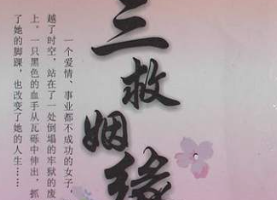 三救姻缘
一个爱情、事业都不成功的女子，
越了时空，站在了一处倒塌的牢狱的废
上。一只黑色的血手从瓦砾中伸出，抓
了她的脚踝，也改变了她的人生……